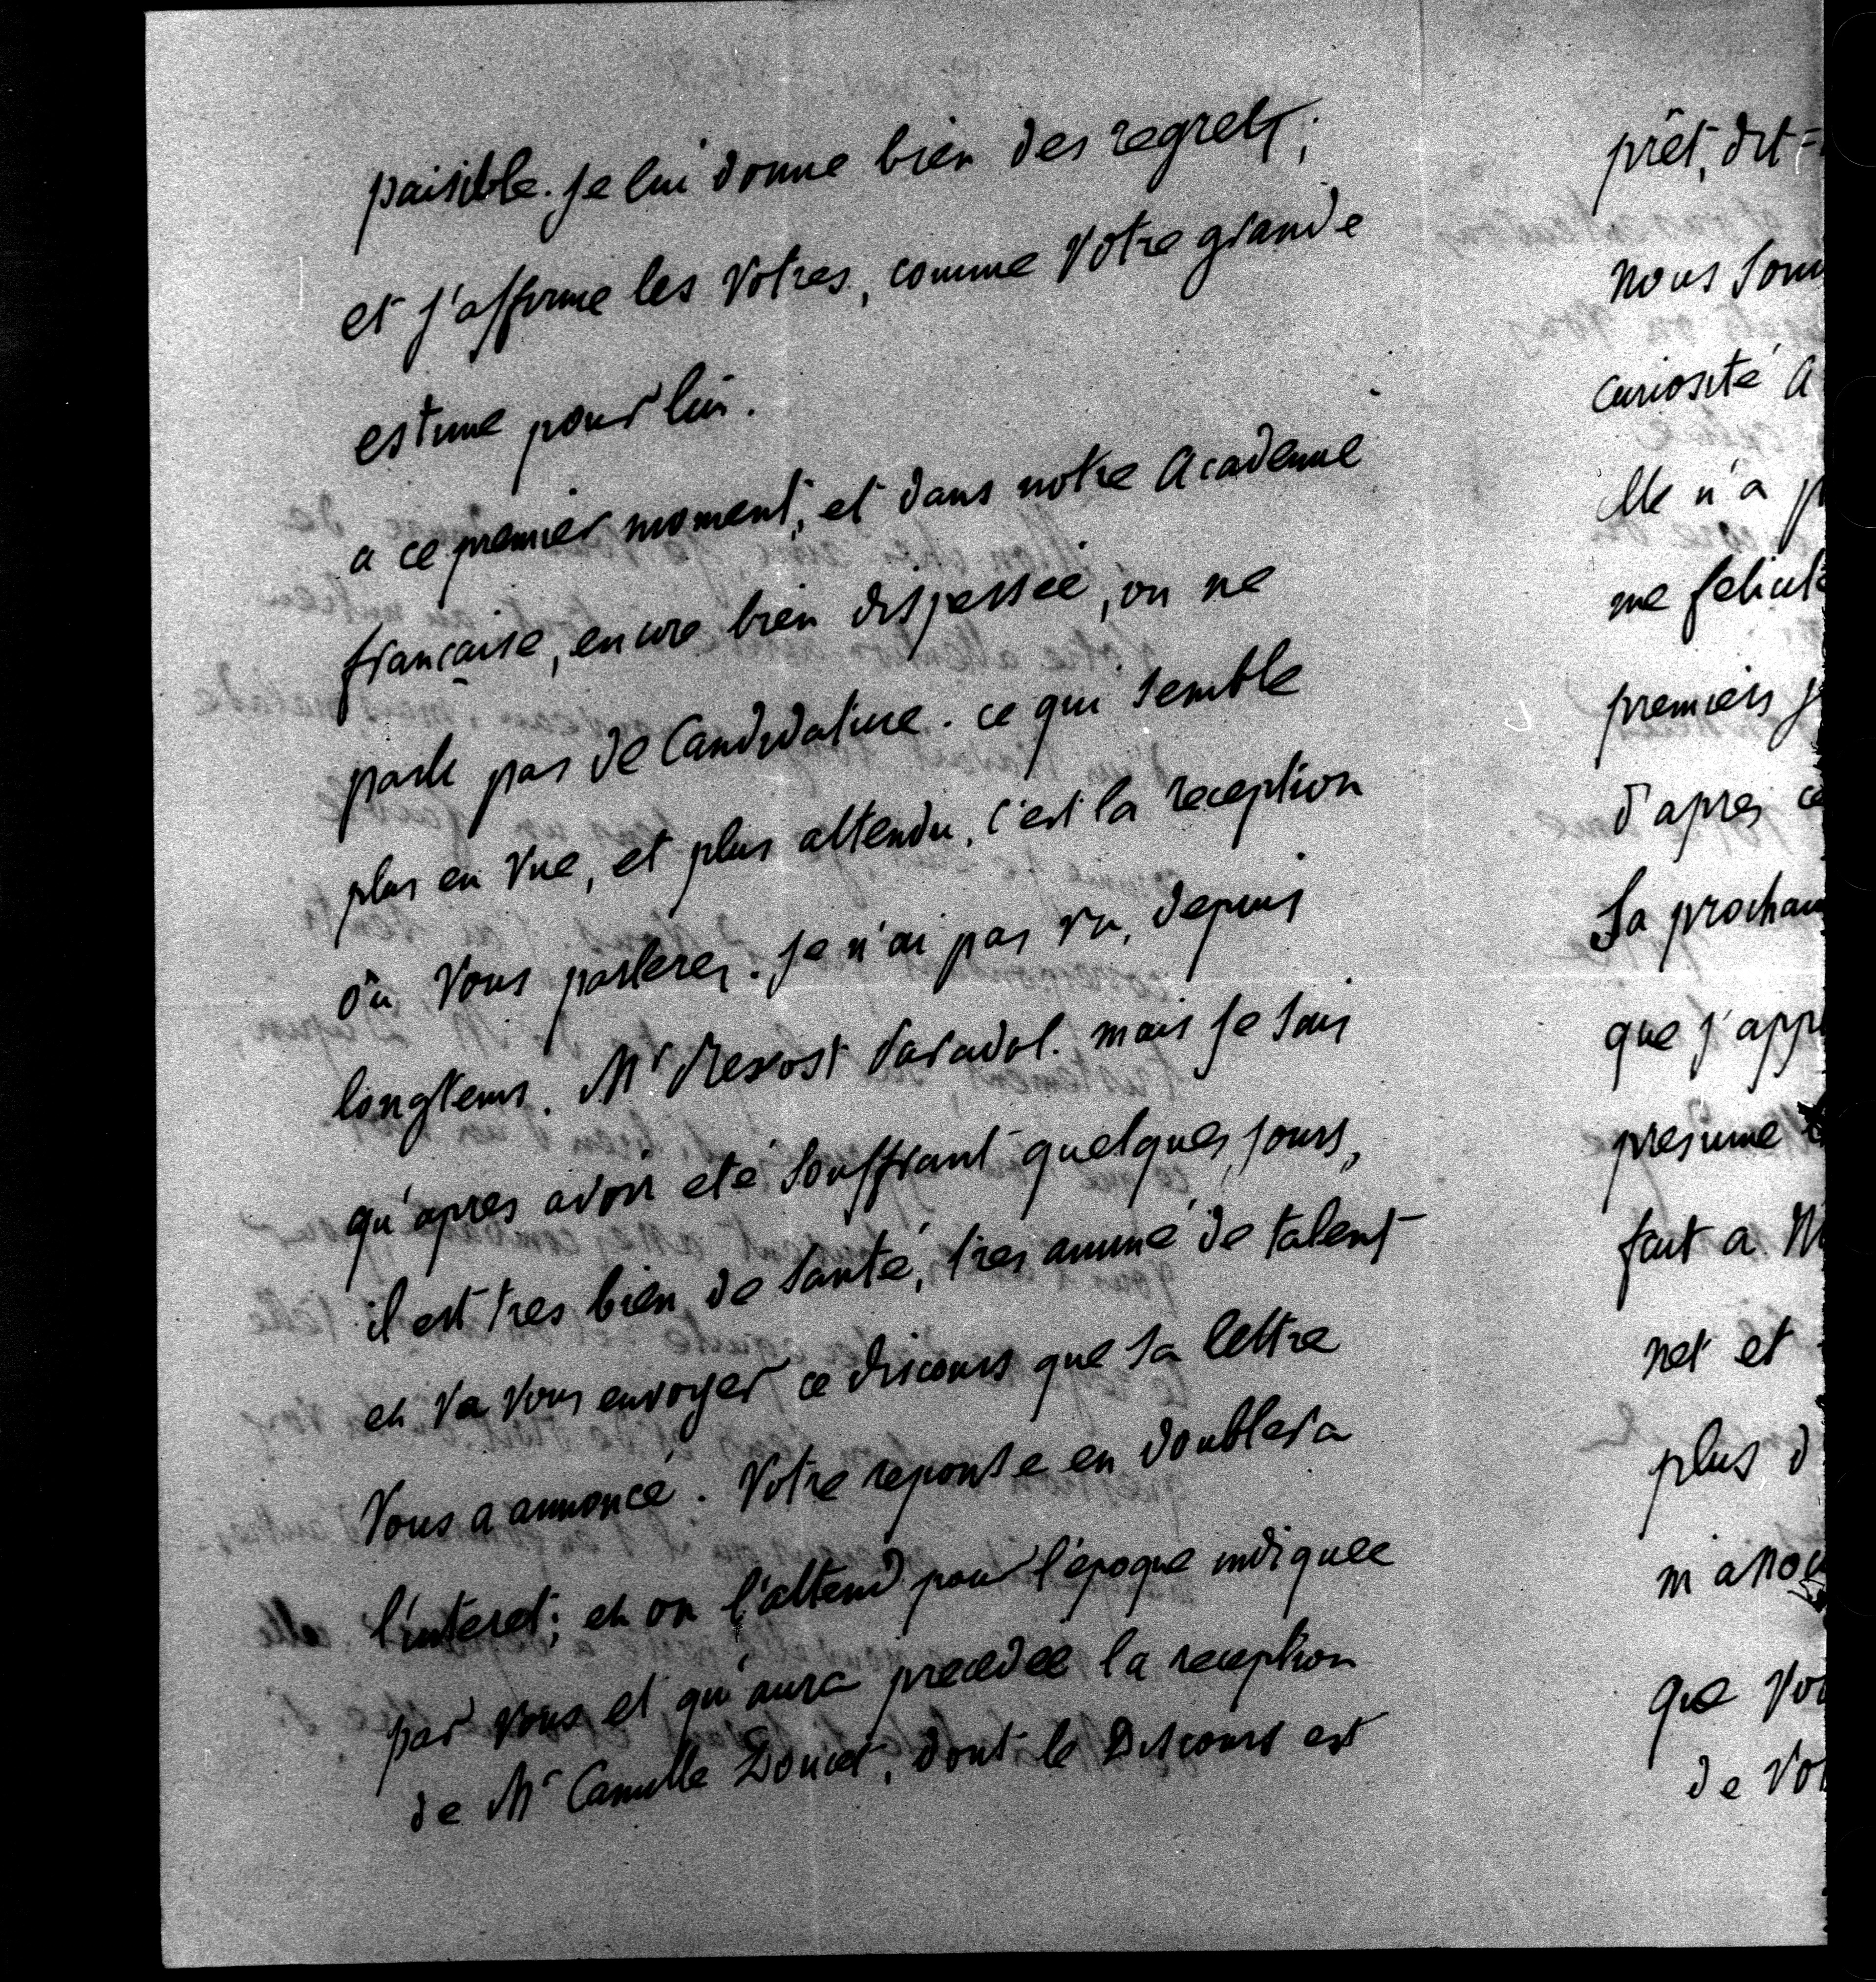 paisible. je lui donne bien des regrets;
et j'affirme les votres, comme votre grande
estime pour lui.
a ce premier moment, et dans notre Academie
française, encore bien dispersée, on ne
parle pas de Candidature. ce qui semble
plus en vue, et plus attendu, c'est la reception
où vous parlerez. je n'ai pas vu, depuis
longtems. Mr Prevost Paradol. mais je sais
qu'apres avoir eté souffrant quelques jours,
il est tres bien de santé, tres animé de talent
et va vous envoyer ce discours que sa lettre
vous a annoncé. Votre reponse en doublera
l'interet; et on l'attend pour l'époque indiquée
par vous et qu'aura precedée la reception
de Mr Camille Doucet, dont le Discours est
prêt, dit-
nous som
curiosité a
Elle n'a p
me felicite
premiers j
d'apres ce
Sa prochain
que j'app
presume
fait a M
net et
plus d
m'annon
que vou
de vot